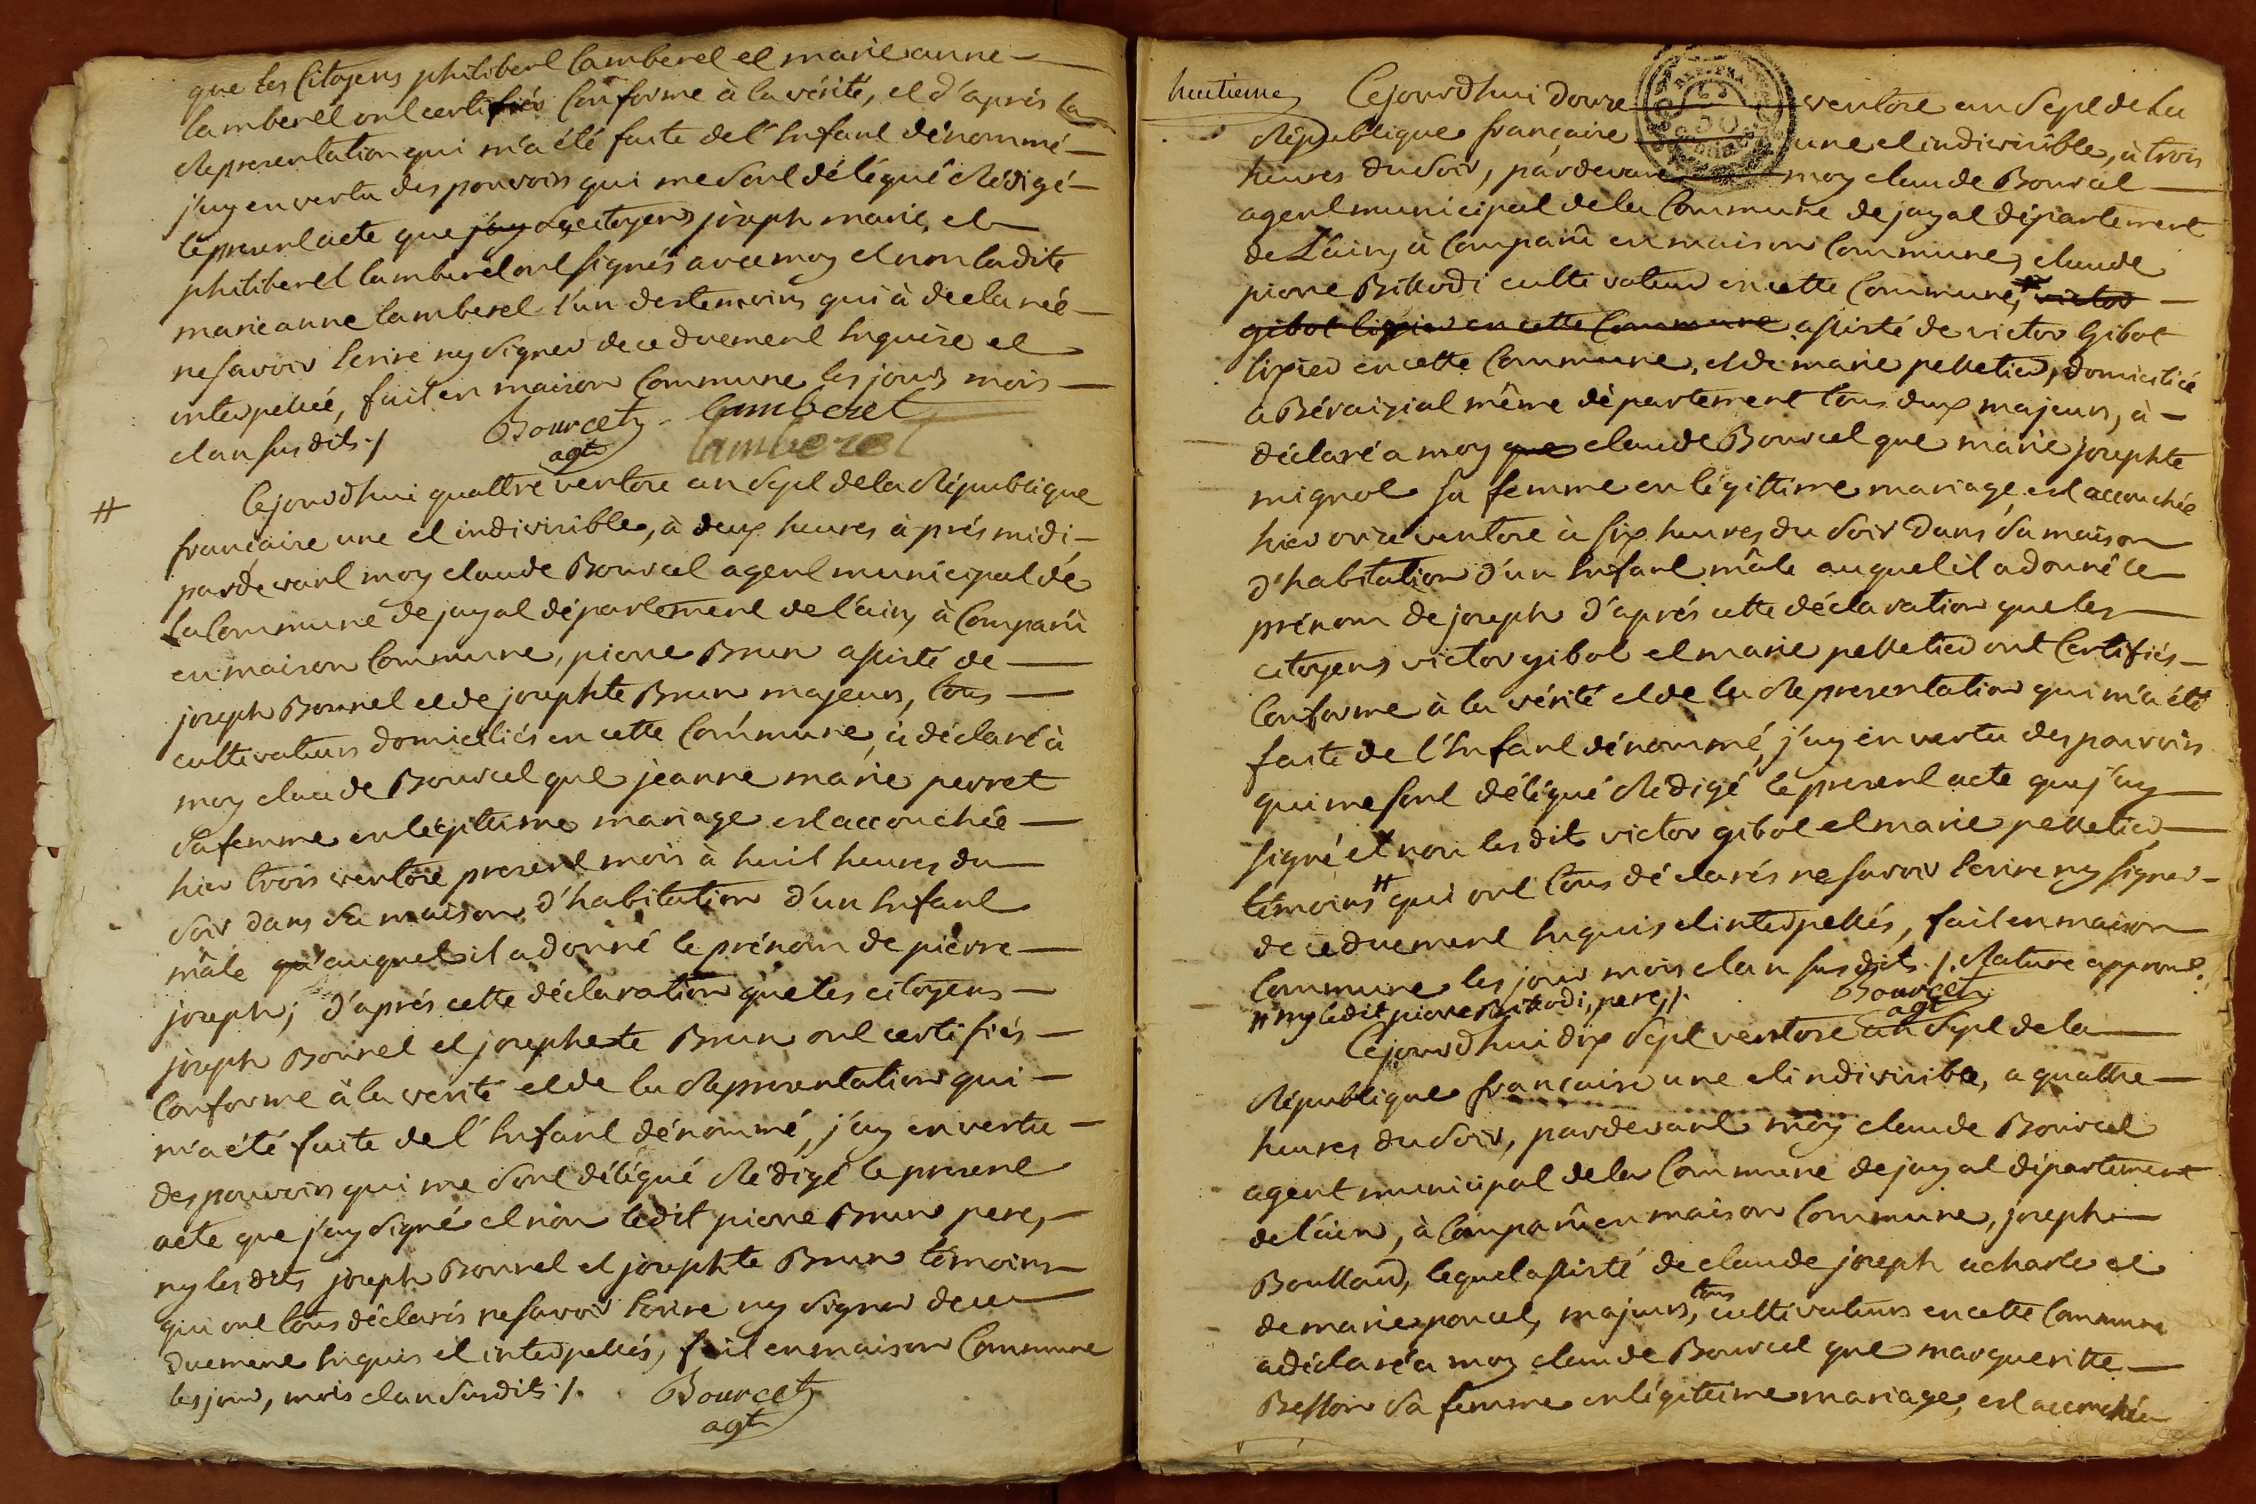 que les Citoyens philibert Lamberel et marie anne
lamberel ont certifiés Conforme à la vérité, et d'après la
Representation qui m'a été faite de l'Enfant dénommé
j'ay en vertu des pouvoirs qui me sont délégué Rédigé
le present acte que j'ay les citoyens joseph marie, et
philiberl lamberel ont signés avec moy et non ladite
marie anne lamberel l'un des temoins qui à declaréé
ne savoir Ecrire ny signer de ce duement Enquise et
interpellée, fait en maison Commune les jours mois
et an susdits ./ Bourcet lamberet
agt lamberet
# Cejourd'hui quattre ventose an Sept de la République
française une et indivisible, à deux heures après midi
pardevant moy claude Bourcel agent municipal de
la Commune de jayat département de l'ain, à Comparû
en maison Commune, pierre Brun assisté de
joseph Bonnel et de josephte Brun majeurs, tous
cultivateurs domiciliés en cette Commune, à déclaré à
moy claude Bourcel que jeanne marie perret
sa femme en légitime mariage est accouchée
hier trois ventose present mois à huit heures du
soir dans sa maison d'habitation d'un Enfant
mâle qu'auquel il a donné le prénom de pierre
joseph; d'après cette déclaration que les citoyens
joseph Bonnel et josephete Brun ont certifiés
Conforme à la verité et de la Representation qui
m'a été faite de l'Enfant dénommé, j'ay en vertu
des pouvoirs qui me sont délégué Rédigé le present
acte que j'ay signé et non ledit pierre Brun pere,
ny lesdits joseph Bonnel et josephte Brun témoins
qui ont tous déclarés ne savoir Ecrire ny signer de ce
duement Enquis et interpellés, fait en maison Commune
les jour, mois et an susdits ./. Bourcet
agt
huitieme Cejourd'hui douze ventose an Sept de la
République française une et indivisible, à trois
heures du soir, pardevant moy claude Bourcel
agent municipal de la Commune de jayat département
de L'ain, à Comparû en maison Commune, claude
pierre Billiodi cultivateur en cette Commune, victor
gibot tixier en cette Commune assisté de victor Gibot
tixier en cette Commune, et de marie pelletier, domiciliée
a Béraizial même département tous deux majeurs, à
déclaré a moy que claude Bourcel que marie josephte
mignot sa femme en légittime mariage est accouchée
hier onze ventose à six heures du soir dans sa maison
d'habitation d'un Enfant mâle auquel il a donné le
prénom de joseph d'après cette déclaration que les
citoyens victor gibot et marie pelletier ont Certifiés
Conforme à la vérité et de la Representation qui m'a été
faite de l'Enfant dénommé, j'ay en vertu des pouvoirs
qui me sont délégué Rédigé le present acte que j'ay
signé et non les dit victor gibot et marie pelletier
témoins # qui ont tous déclarés ne savoir Ecrire ny signer
de ce duement Enquis et interpellés, fait en maison
Commune les jour mois et an susdits ./. Rature approuvé.
# ny ledit pierre Billiodi, pere ./. Bourcet
agt
Cejourd'hui dix Sept ventose an Sept de la
République française une et indivisible, a quattre
heures du soir, pardevant moy claude Bourcel
agent municipal de la Commune de jayat département
de l'ain, à Comparû en maison Commune, joseph
Boullard, lequel assisté de claude joseph acharle et
de marie poncel, majeurs, tous cultivateurs en cette Commune
a déclaré a moy claude Bourcel que margueritte
Besson sa femme en légitime mariage, est accouchée